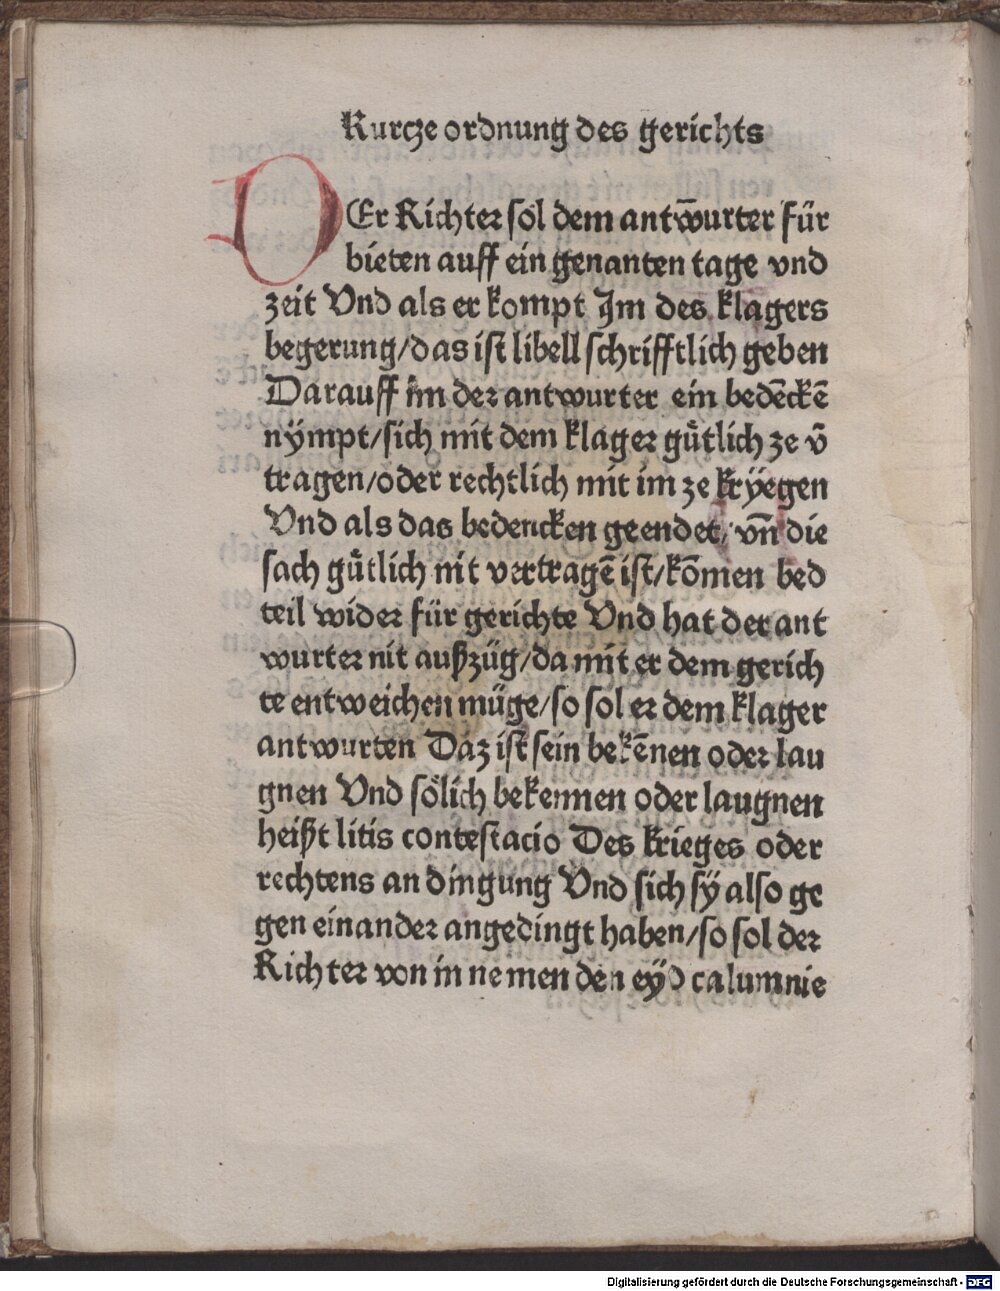 Kurcze ordnung des gerichts
DEr Richter sol dem antw̄urter für
bieten auff ein genanten tage vnd
zeit Vnd als er kompt Im des klagers
begerung/das ist libell schrifftlich geben
Darauff im der antwurter ein bedēckē
nÿmpt/sich mit dem klager gütlich ze v̄
tragen/oder rechtlich mit im ze krÿegen
Vnd als das bedencken geendet/ vn̄ die
sach gütlich nit vertragē ist/kōmen bed
teil wider für gerichte Vnd hat der ant
wurter nit außzüg/da mit er dem gerich
te entweichen müge/so sol er dem klager
antwurten Daz ist sein bekēnen oder lau
gnen Vnd sölich bekennen oder laugnen
heißt litis contestacio Des krieges oder
rechtens an dingung Vnd sich sÿ also ge
gen einander angedingt haben/so sol der
Richter von in nemen den eÿd calumnie
Digitalisierung gefördert durch die Deutsche Forschungsgemeinschaft - DFG